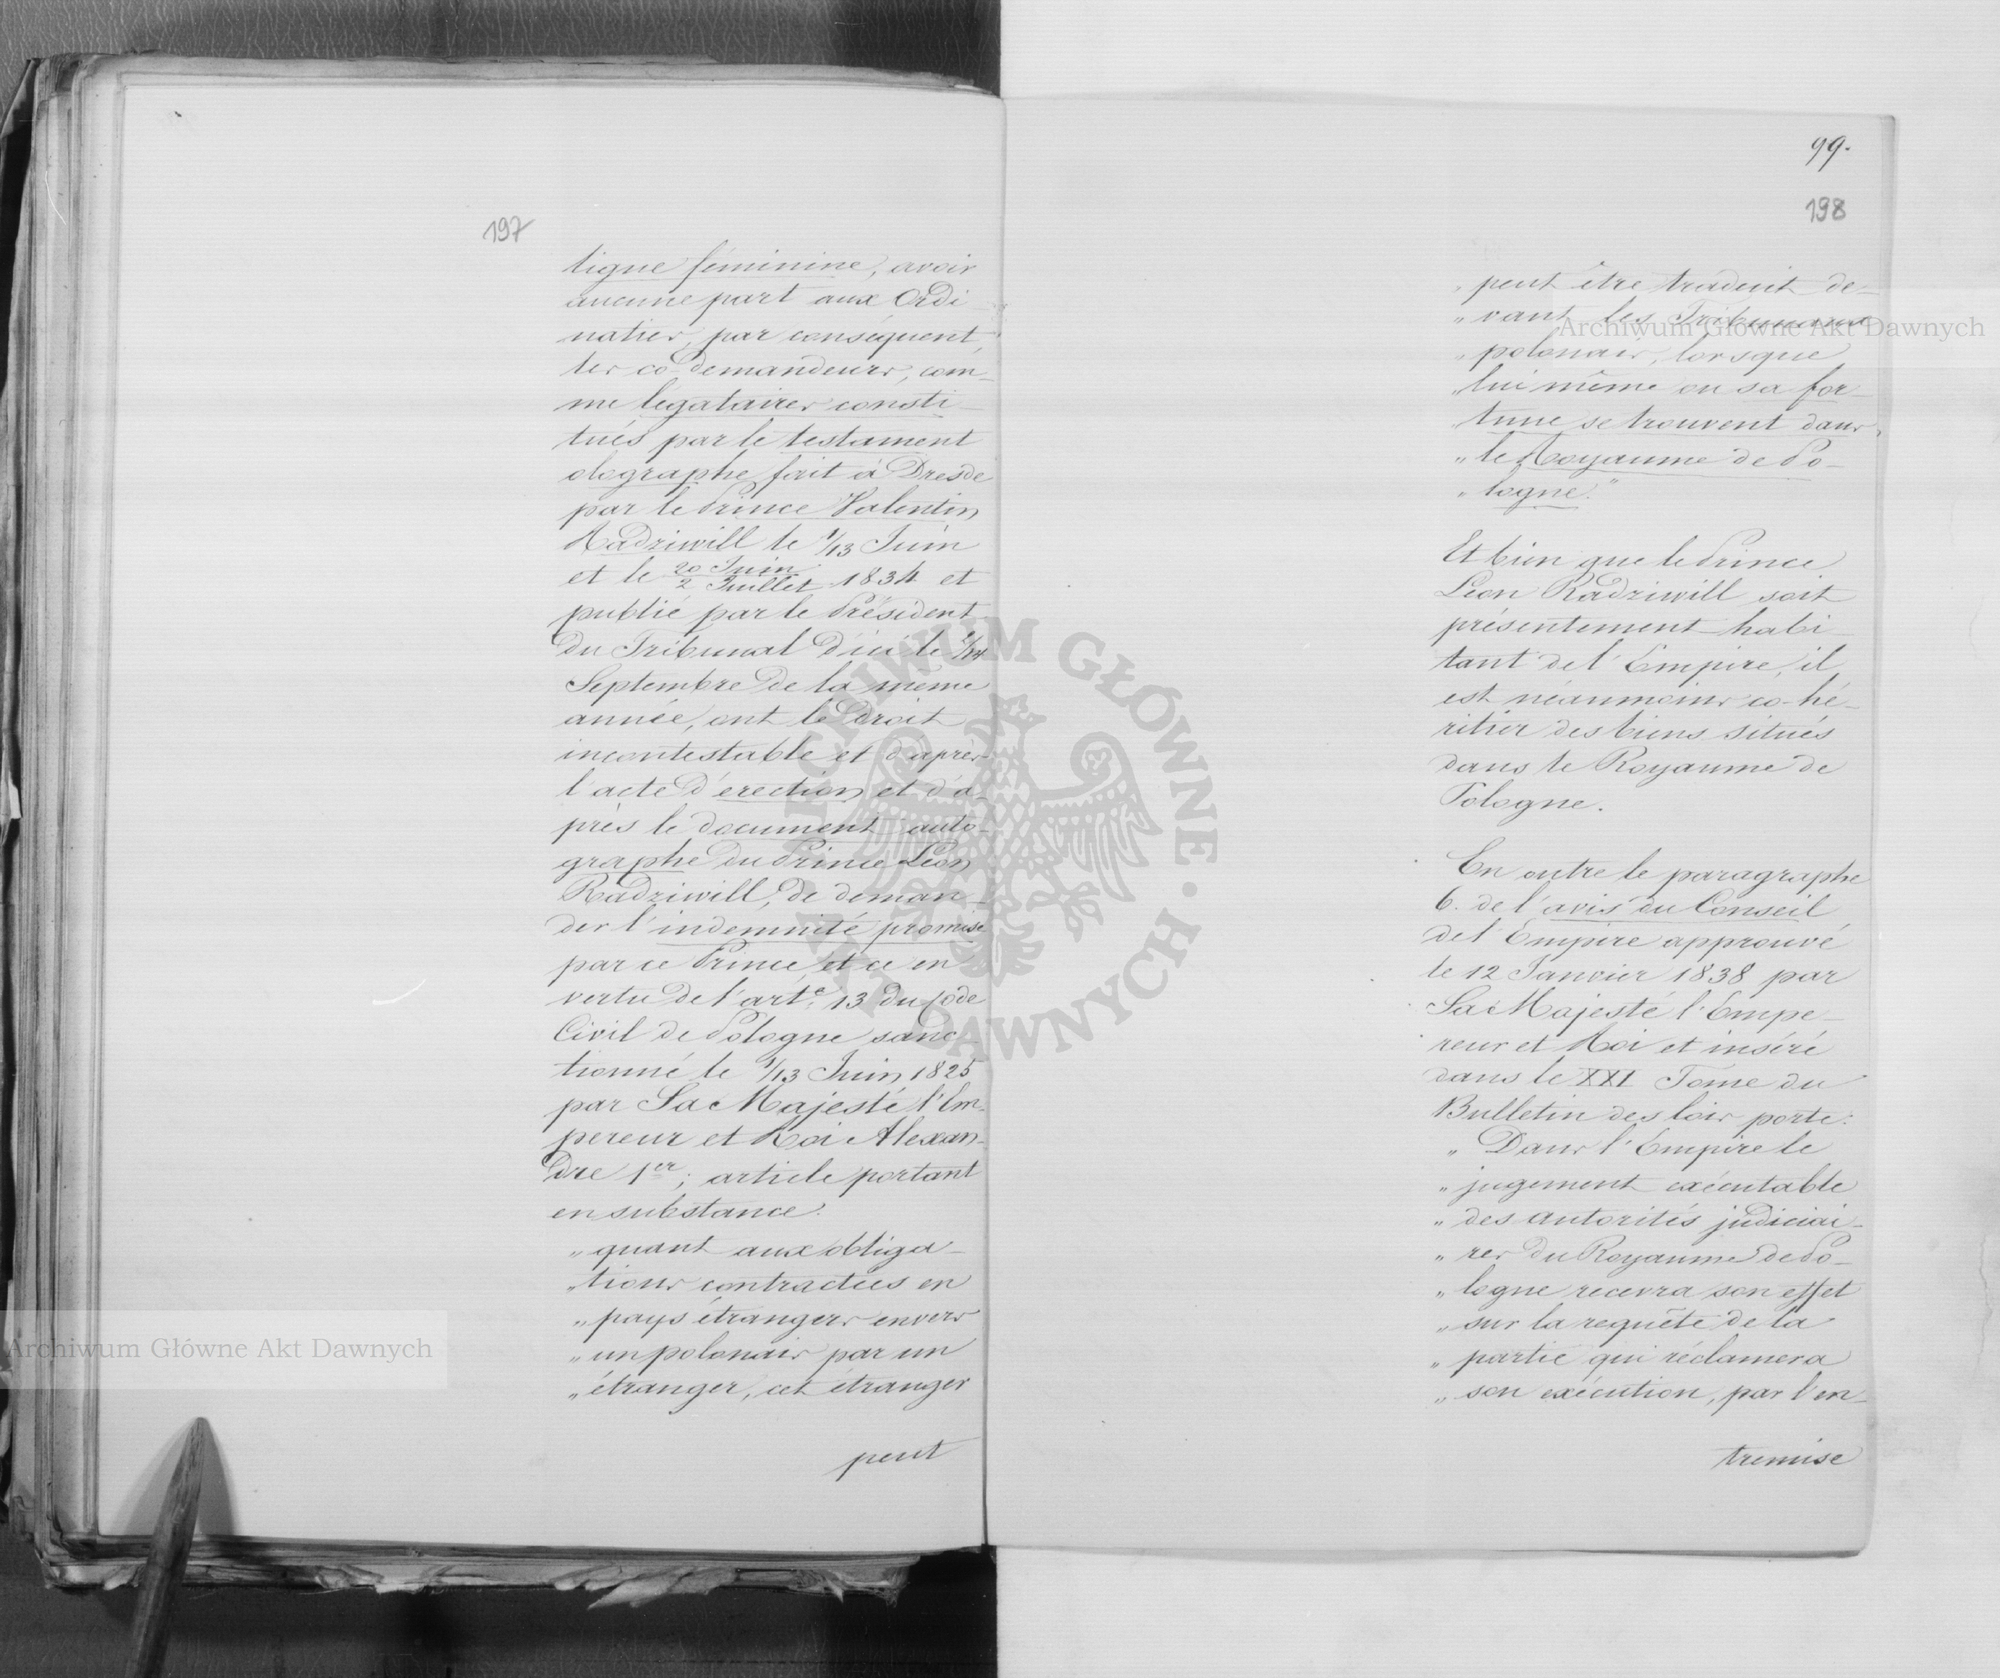 197
ligne féminine, avoir
aucune part aux Ordi-
natier, par conséquent,
les co-demandeurs, com-
me légataires consti-
tués par le testament
olographe fait à Dresde
par le Prince Valentin
Radziwill le 1/13 Juin
et le 20 Juin/2 Juillet 1834 et
publié par le Président
du Tribunal d'ici le 2/14
Septembre de la même
année, ont le droit
incontestable et d'après
l'acte d'erection et d'a-
près le document auto-
graphe du Prince Léon
Radziwill, de deman-
der l'indemnité promise
par ce Prince, et ce en
vertu de l'art.e 13 du Code
Civil de Pologne sanc-
tionné le 1/13 Juin 1825
par Sa Majesté l'Em-
pereur et Roi Alexan-
dre 1er; article portant
en substance:
„ quant aux obliga-
„ tions contractées en
„ pays étrangers envers
„ un polonais par un
„ étranger, cet étranger
peut
99.
198
„ peut être traduit de-
„ vant les Tribunaux
„ polonais, lorsque
„ lui même ou sa for-
„ tune se trouvent dans
„ le Royaume de Po-
„ logne."
Et bien que le Prince
Léon Radziwill soit
présentement habi-
tant de l'Empire, il
est néanmoins co-hé-
ritier des biens situés
dans le Royaume de
Pologne.
En outre le paragraphe
6. de l'avis du Conseil
de l'Empire approuvé
le 12 Janvier 1838 par
Sa Majesté l'Empe-
reur et Roi et inséré
dans le XXI Tome du
Bulletin des lois porte:
„ Dans l'Empire le
„ jugement exécutable
„ des autorités judiciai-
„ res du Royaume de Po-
„ logne recevra son effet
„ sur la requête de la
„ partie qui réclamera
„ son exécution, par l'en-
tremise
Archiwum Główne Akt Dawnych
Archiwum Główne Akt Dawnych
ARCHIWUM GŁÓWNE · AKT DAWNYCH ·